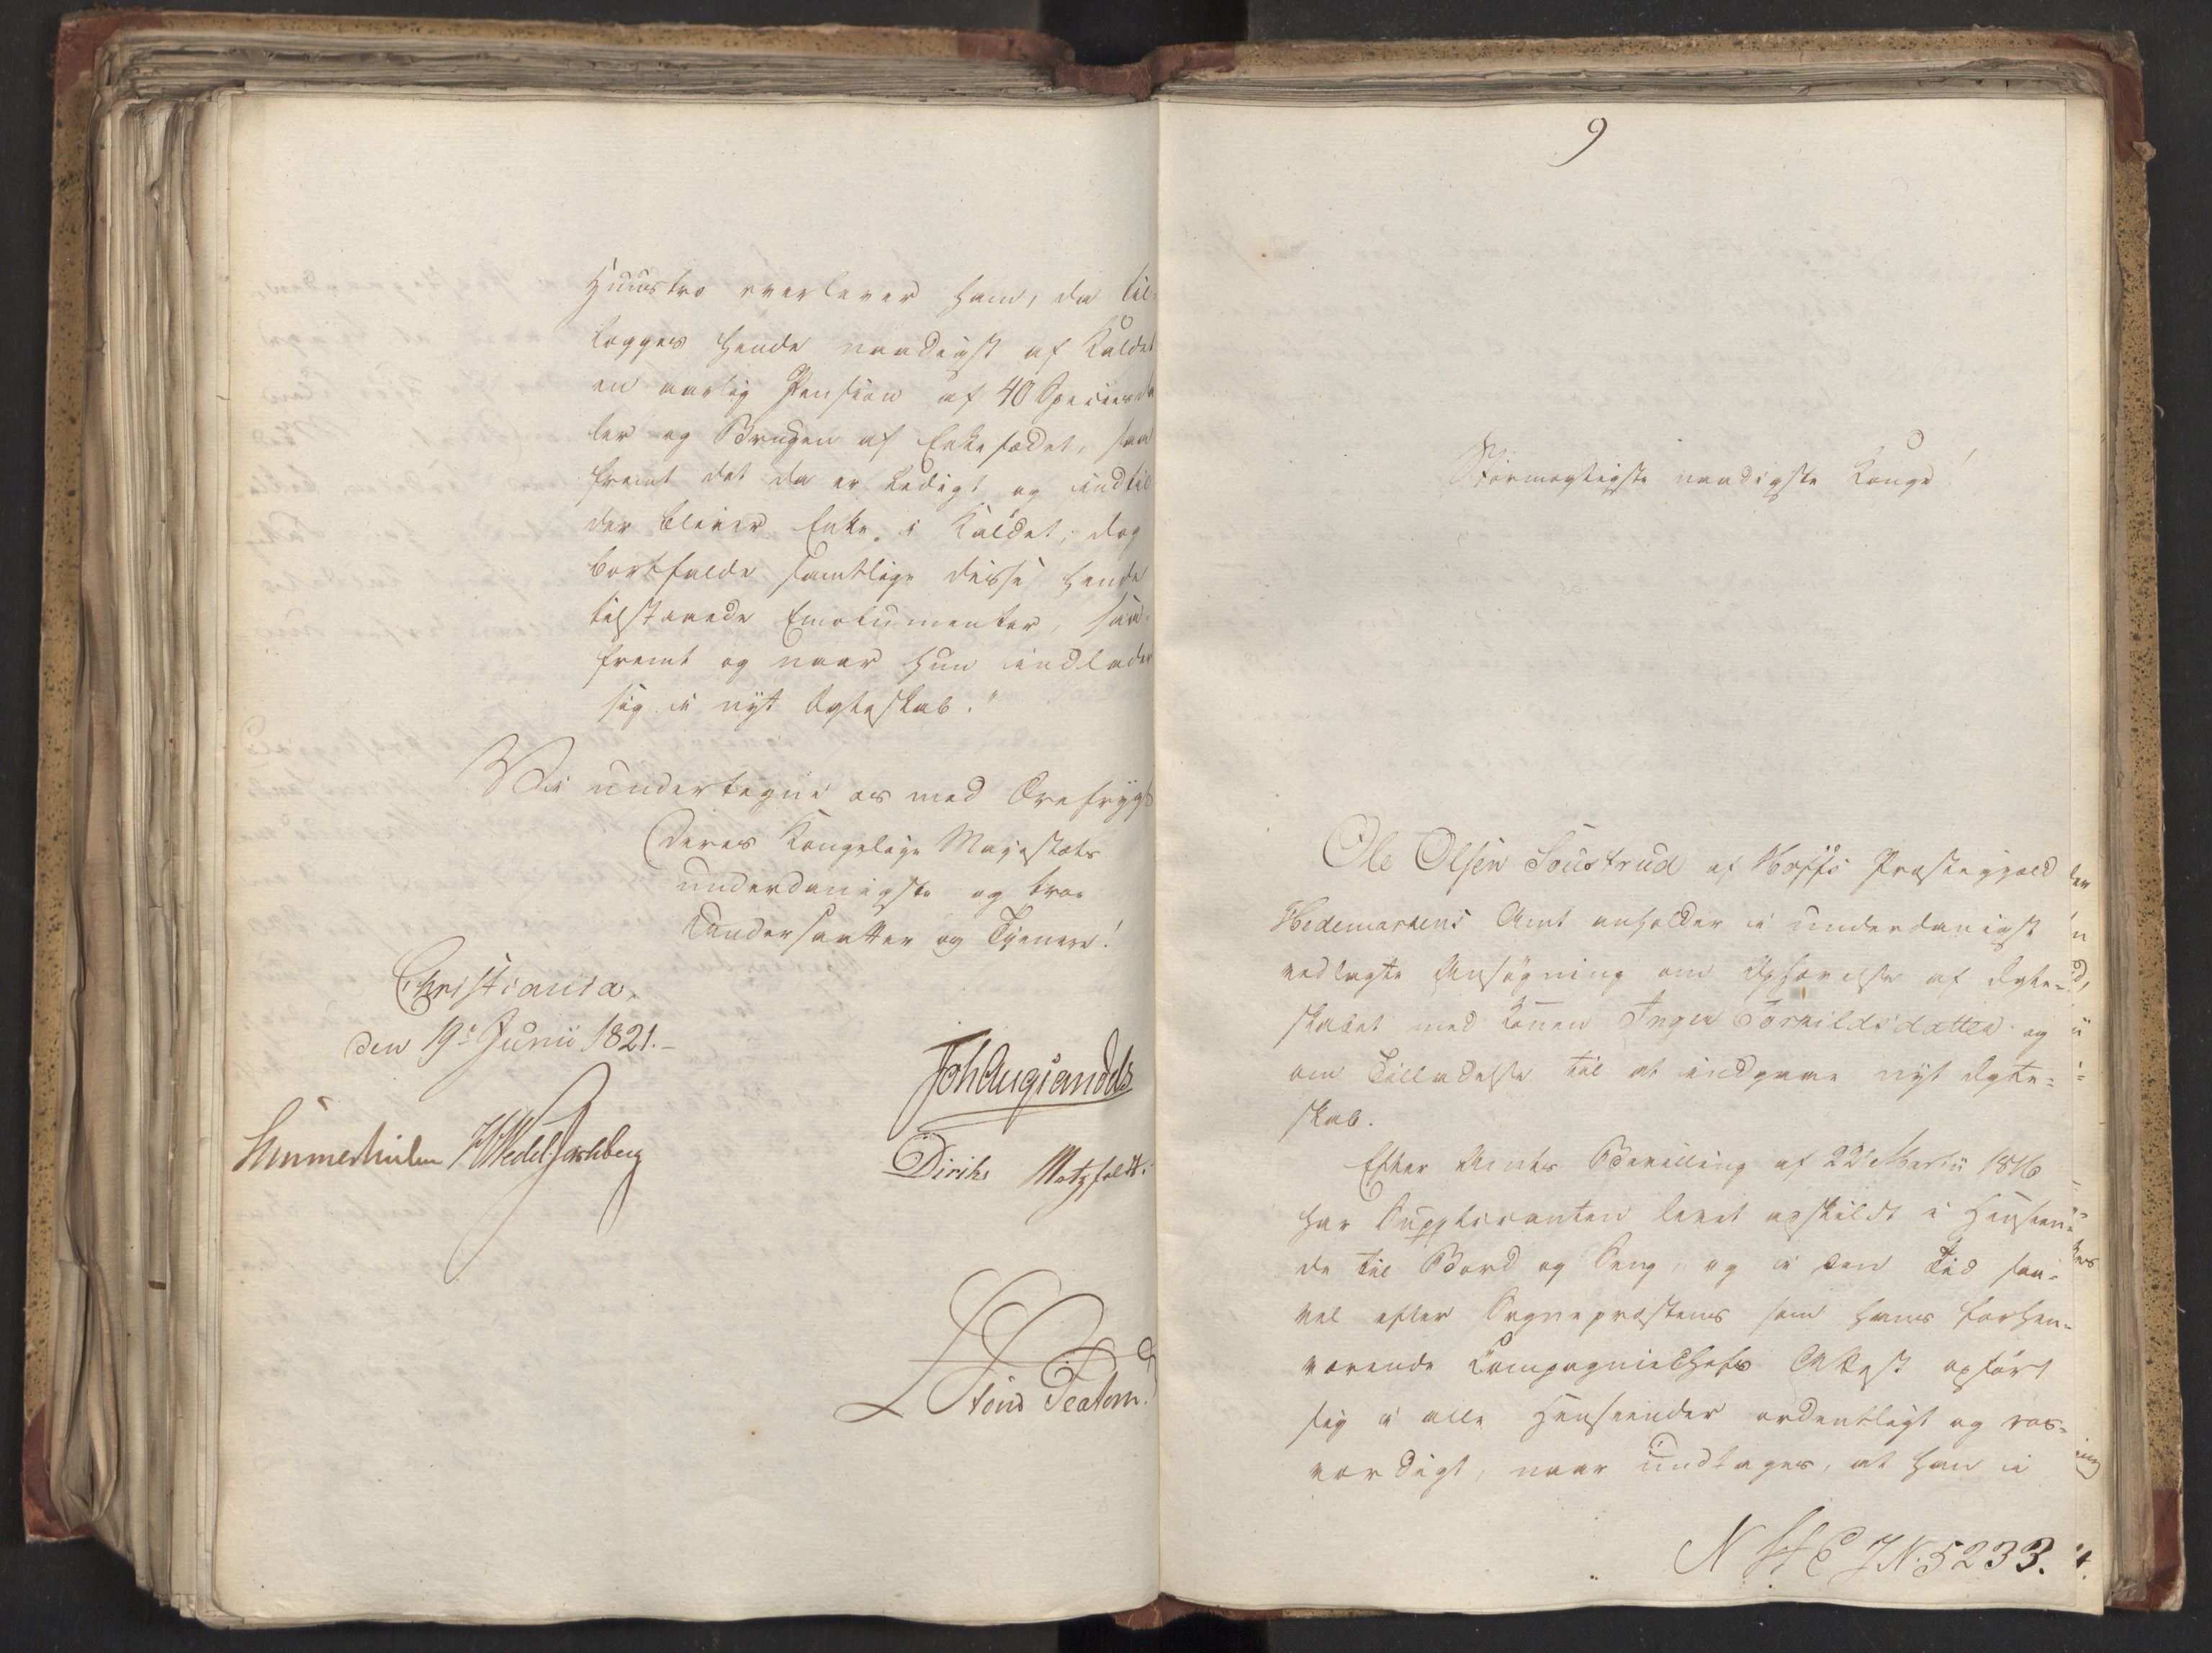 Huustro overlever ham, da til-
lægges hende naadigst af Kaldet
en aarlig Pension af 40 Speciesda
ler og Brugen af Enkesædet, saa
fremt det da er ledigt og indtil
der bliver Enke i Kaldet; dog
bortfalde samtlige disse hende
tilstaaede Emolumenter, saa-
fremt og naar hun indlader
sig i nyt Ægteskab."
Vi undertegne os med Ærefrygt
Deres Kongelige Majestæts
underdanigste og troe
Undersaatter og Tjenere!
Christiania,
den 19de Junii 1821.
JohAugSandels
Sommerhielm HWedelJarlsberg
Diriks Motzfeldt.
9
Stormægtigste naadigste Konge!
Ole Olsen Soustrud af Hoffs Præstegjeld
Hedemarkens Amt anholder i underdanigst
vedlagte Ansøgning om Ophævelse af Ægte-
skabet med Konen Inger Torkildsdatter og
om Tilladelse til at indgaae nyt Ægte-
skab.
Efter Amts Bevilling af 22de Martii 1816
har Supplicanten levet adskildt i Henseen-
de til Bord og Seng, og i den Tid saa-
vel efter Sognepræstens som hans forhen-
værende Compagniechefs Attest opført
sig i alle Henseender ordentligt og roes-
værdigt, naar undtages, at han i
N 5233.